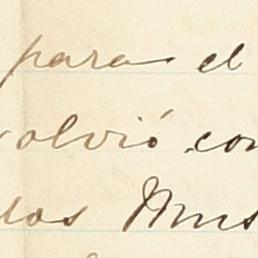 para el
olvió con
los Mus